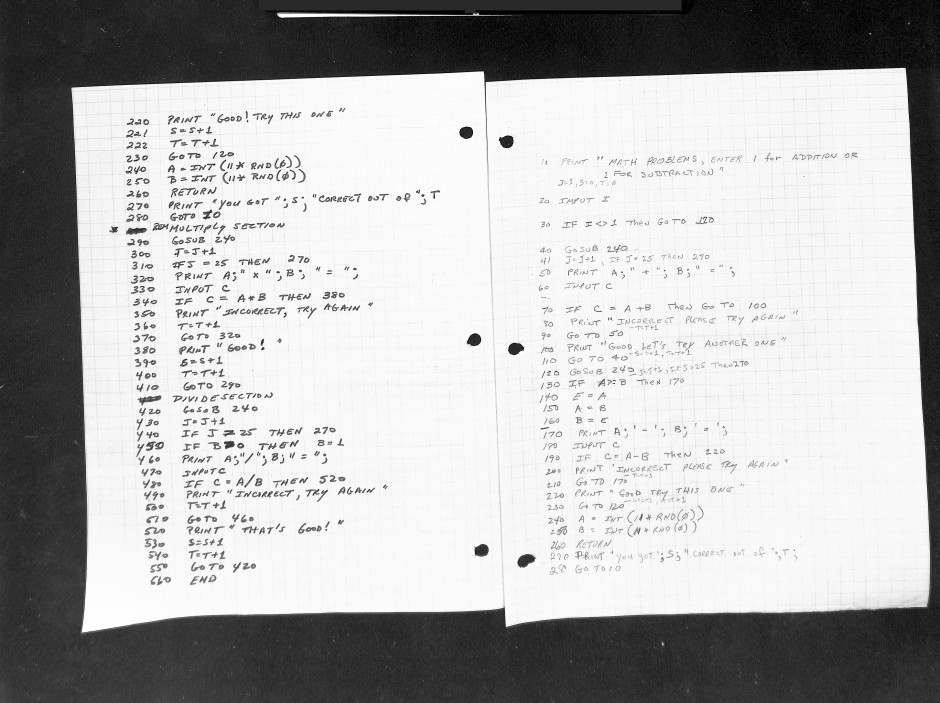 220 PRINT "GOOD! TRY THIS ONE"
221 S=S+1
222 T=T+1
230 GOTO 120
240 A=INT (11* RND(φ))
250 B=INT (11* RND(φ))
260 RETURN
270 PRINT "YOU GOT "; S; "CORRECT OUT OF "; T
280 GOTO 10
* REM MULTIPLY SECTION
290 GOSUB 240
300 J=J+1
310 IF J = 25 THEN 270
320 PRINT A; " x "; B; " = ";
330 INPUT C
340 IF C = A*B THEN 380
350 PRINT "INCORRECT, TRY AGAIN"
360 T=T+1
370 GOTO 320
380 PRINT "GOOD! "
390 S=S+1
400 T=T+1
410 GOTO 290
DIVIDE SECTION
420 GOSUB 240
430 J=J+1
440 IF J = 25 THEN 270
450 IF B=0 THEN B=1
460 PRINT A; "/"; B; " = ";
470 INPUT C
480 IF C = A/B THEN 520
490 PRINT "INCORRECT, TRY AGAIN"
500 T=T+1
510 GOTO 460
520 PRINT "THAT'S GOOD! "
530 S=S+1
540 T=T+1
550 GOTO 420
560 END
10 PRINT " MATH PROBLEMS, ENTER 1 for ADDITION OR
2 FOR SUBTRACTION"
J=1, S=0, T=0
20 INPUT I
30 IF I<>1 Then GO TO 120
40 GOSUB 240
41 J=J+1, IF J=25 THEN 270
50 PRINT A; " + "; B; " = ";
60 INPUT C
70 IF C = A+B Then GO TO 100
80 PRINT "INCORRECT PLEASE TRY AGAIN"
90 GO TO 50 - T=T+1
100 PRINT "GOOD LET'S TRY ANOTHER ONE"
110 GO TO 40 - S=S+1, T=T+1
120 GOSUB 240 J=J+1, If J=25 Then 270
130 IF A>=B Then 170
140 E = A
150 A = B
160 B = E
170 PRINT A; ' - '; B; ' = ';
180 INPUT C
190 IF C=A-B Then 220
200 PRINT 'INCORRECT PLEASE TRY AGAIN"
210 GO TO 170 - T=T+1
220 PRINT "GOOD TRY THIS ONE"
230 GO TO 120 - S=S+1, T=T+1
240 A = INT (11 * RND(φ))
250 B = INT (11 * RND(φ))
260 RETURN
270 PRINT "you got "; S; " correct out of "; T;
28 GO TO 10